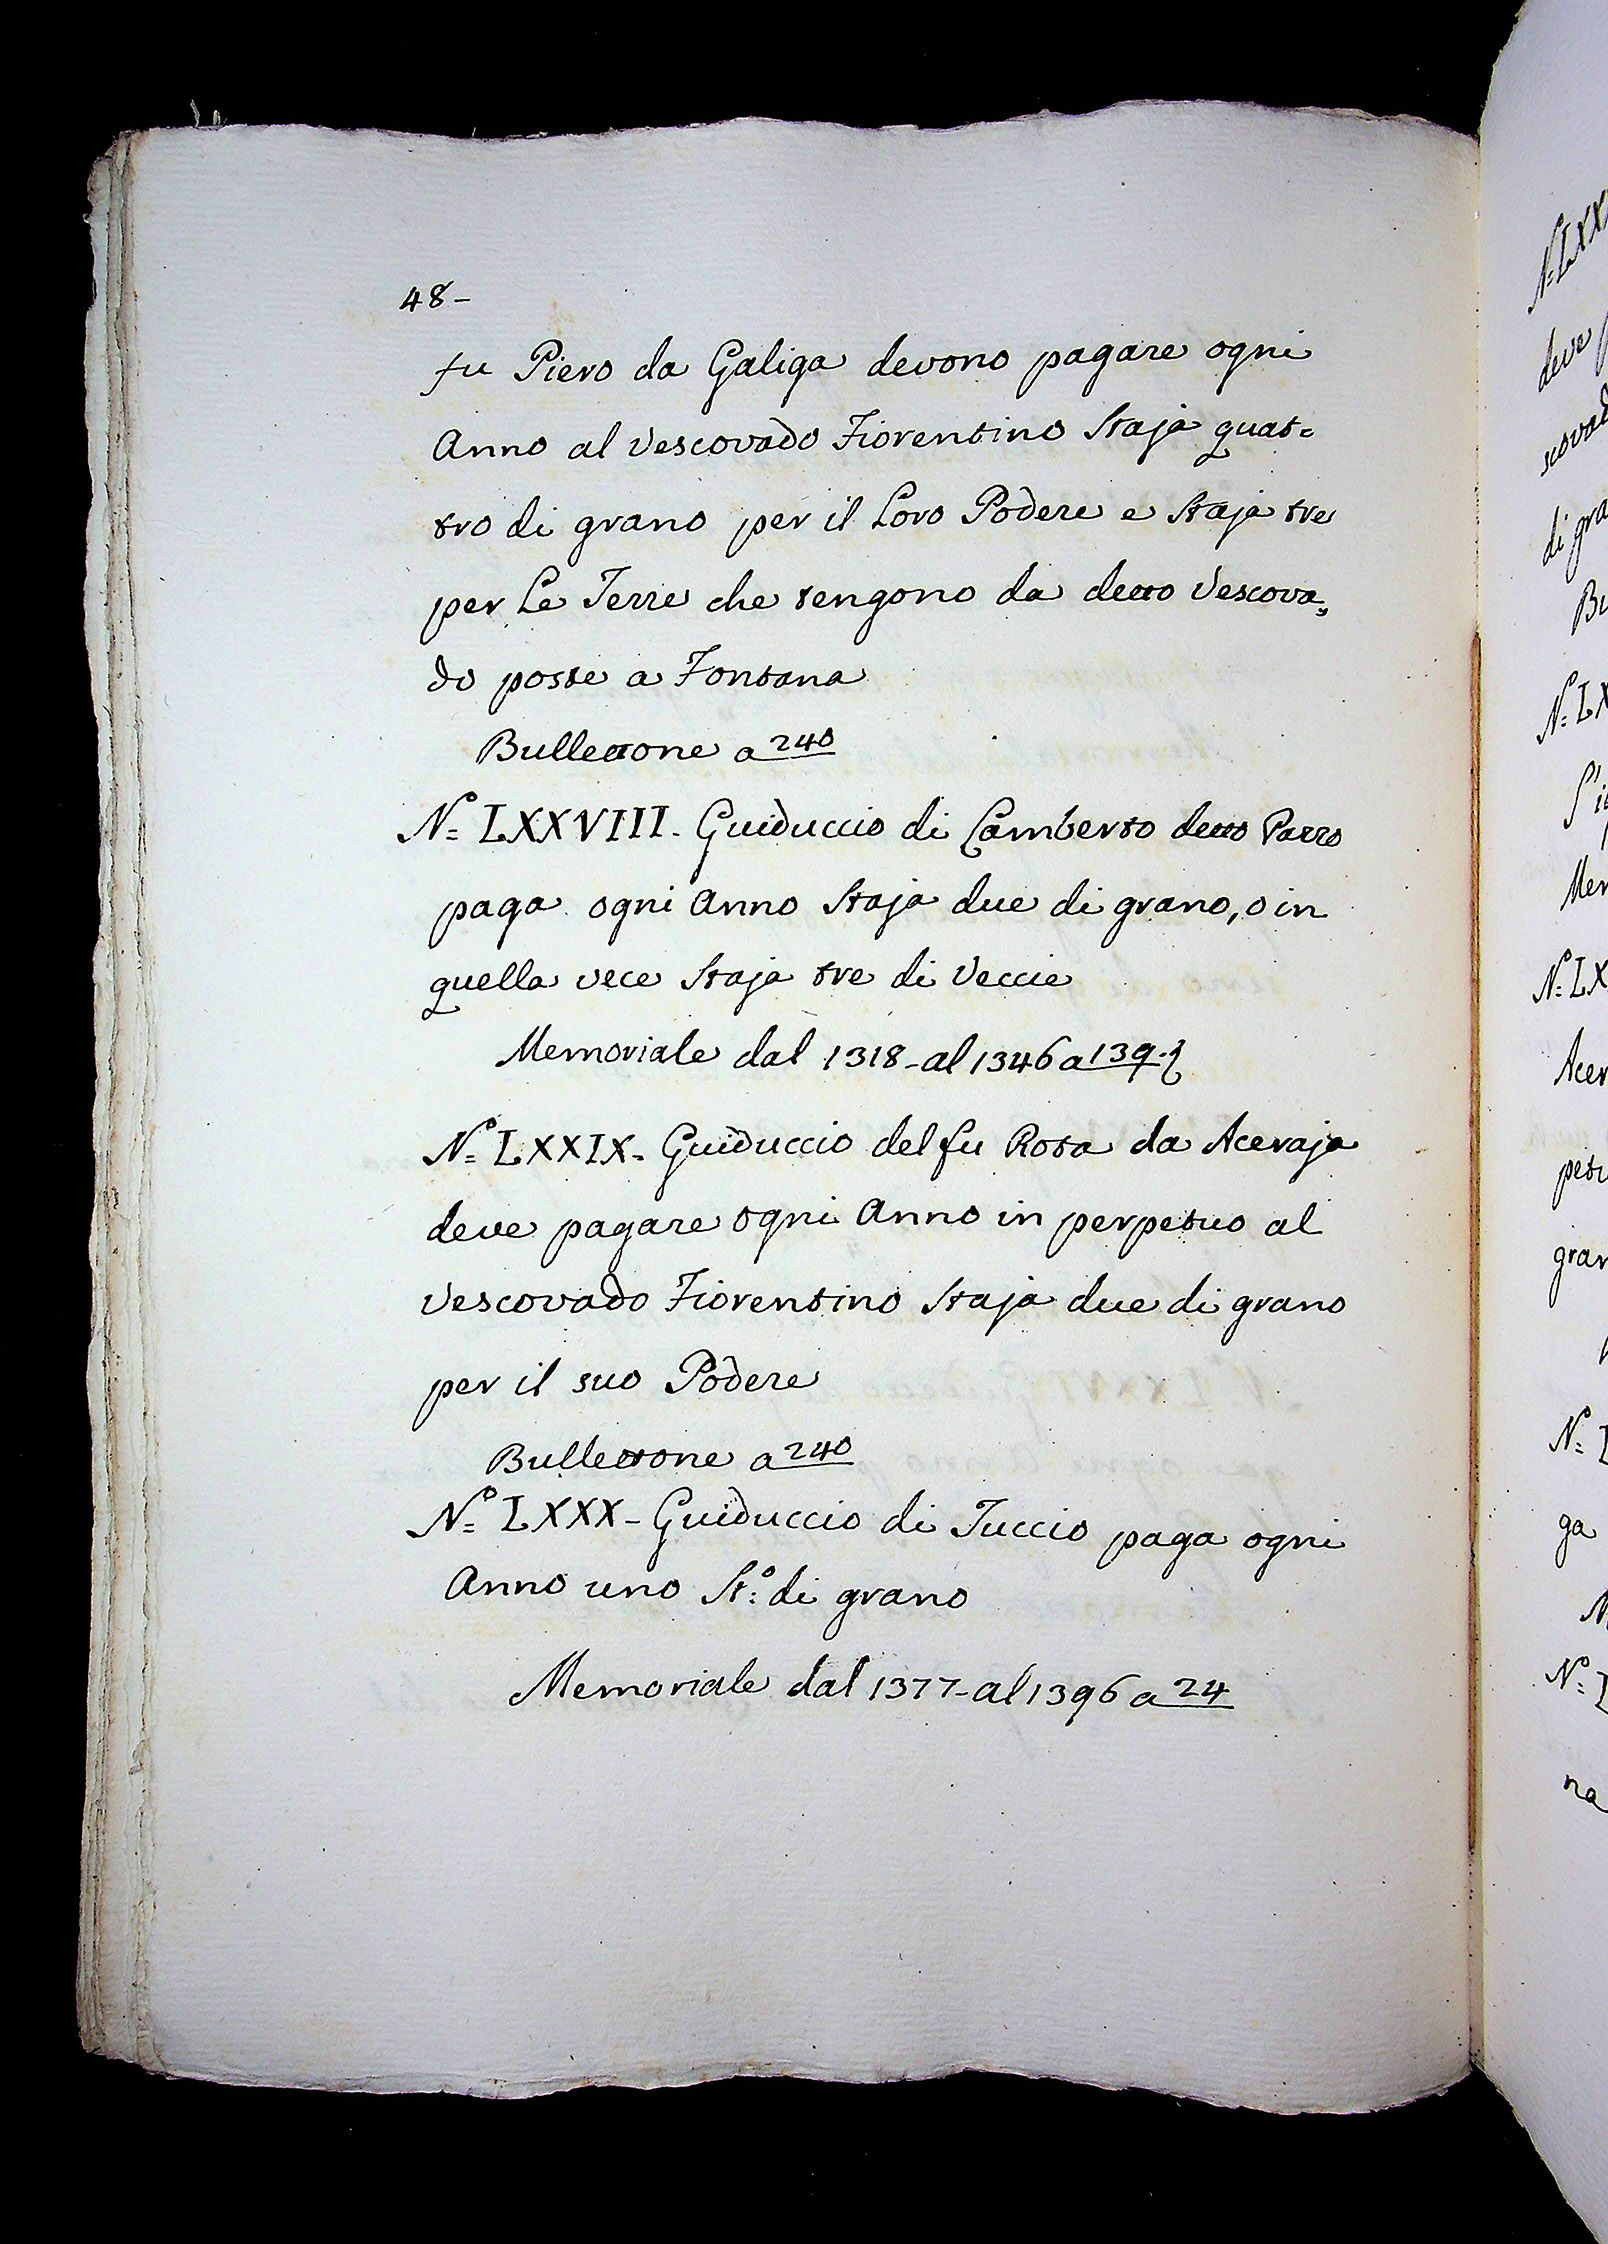 48-
fu Piero da Galiga devono pagare ogni
Anno al Vescovado Fiorentino Staja quat-
tro di grano per il Loro Podere e Staja tre
per Le Terre che tengono da detto Vescova,
do poste a Fontana
Bullettone a 240
Nº= LXXVIII. Guiduccio di Lamberto detto Pazzo
paga ogni Anno Staja due di grano, o in
quella vece Staja tre di Veccie
Memoriale dal 1318- al 1346 a 139.
Nº= LXXIX. Guiduccio del fu Rota da Aceraja
deve pagare ogni Anno in perpetuo al
Vescovado Fiorentino Staja due di grano
per il suo Podere
Bullettone a 240
Nº= LXXX- Guiduccio di Tuccio paga ogni
Anno uno St:º di grano
Memoriale dal 1377- al 1396 a 24
Nº= LXXX
deve
scovad
di gra
Bu
Nº= LX
Mem
Nº= LX
Acer
petu
gran
Nº=
ga
Nº=
na